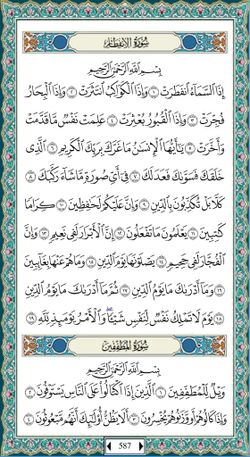 سُورَةُ الانفِطَارِ
بِسْمِ اللَّهِ الرَّحْمَٰنِ الرَّحِيمِ
إِذَا السَّمَاءُ انفَطَرَتْ ١ وَإِذَا الْكَوَاكِبُ انتَثَرَتْ ٢ وَإِذَا الْبِحَارُ
فُجِّرَتْ ٣ وَإِذَا الْقُبُورُ بُعْثِرَتْ ٤ عَلِمَتْ نَفْسٌ مَّا قَدَّمَتْ
وَأَخَّرَتْ ٥ يَا أَيُّهَا الْإِنسَانُ مَا غَرَّكَ بِرَبِّكَ الْكَرِيمِ ٦ الَّذِي
خَلَقَكَ فَسَوَّاكَ فَعَدَلَكَ ٧ فِي أَيِّ صُورَةٍ مَّا شَاءَ رَكَّبَكَ ٨
كَلَّا بَلْ تُكَذِّبُونَ بِالدِّينِ ٩ وَإِنَّ عَلَيْكُمْ لَحَافِظِينَ ١٠ كِرَامًا
كَاتِبِينَ ١١ يَعْلَمُونَ مَا تَفْعَلُونَ ١٢ إِنَّ الْأَبْرَارَ لَفِي نَعِيمٍ ١٣ وَإِنَّ
الْفُجَّارَ لَفِي جَحِيمٍ ١٤ يَصْلَوْنَهَا يَوْمَ الدِّينِ ١٥ وَمَا هُمْ عَنْهَا بِغَائِبِينَ
١٦ وَمَا أَدْرَاكَ مَا يَوْمُ الدِّينِ ١٧ ثُمَّ مَا أَدْرَاكَ مَا يَوْمُ الدِّينِ
١٨ يَوْمَ لَا تَمْلِكُ نَفْسٌ لِّنَفْسٍ شَيْئًا ۖ وَالْأَمْرُ يَوْمَئِذٍ لِّلَّهِ ١٩
سُورَةُ المُطَفِّفِينَ
بِسْمِ اللَّهِ الرَّحْمَٰنِ الرَّحِيمِ
وَيْلٌ لِّلْمُطَفِّفِينَ ١ الَّذِينَ إِذَا اكْتَالُوا عَلَى النَّاسِ يَسْتَوْفُونَ ٢
وَإِذَا كَالُوهُمْ أَو وَّزَنُوهُمْ يُخْسِرُونَ ٣ أَلَا يَظُنُّ أُولَٰئِكَ أَنَّهُم مَّبْعُوثُونَ ٤
587